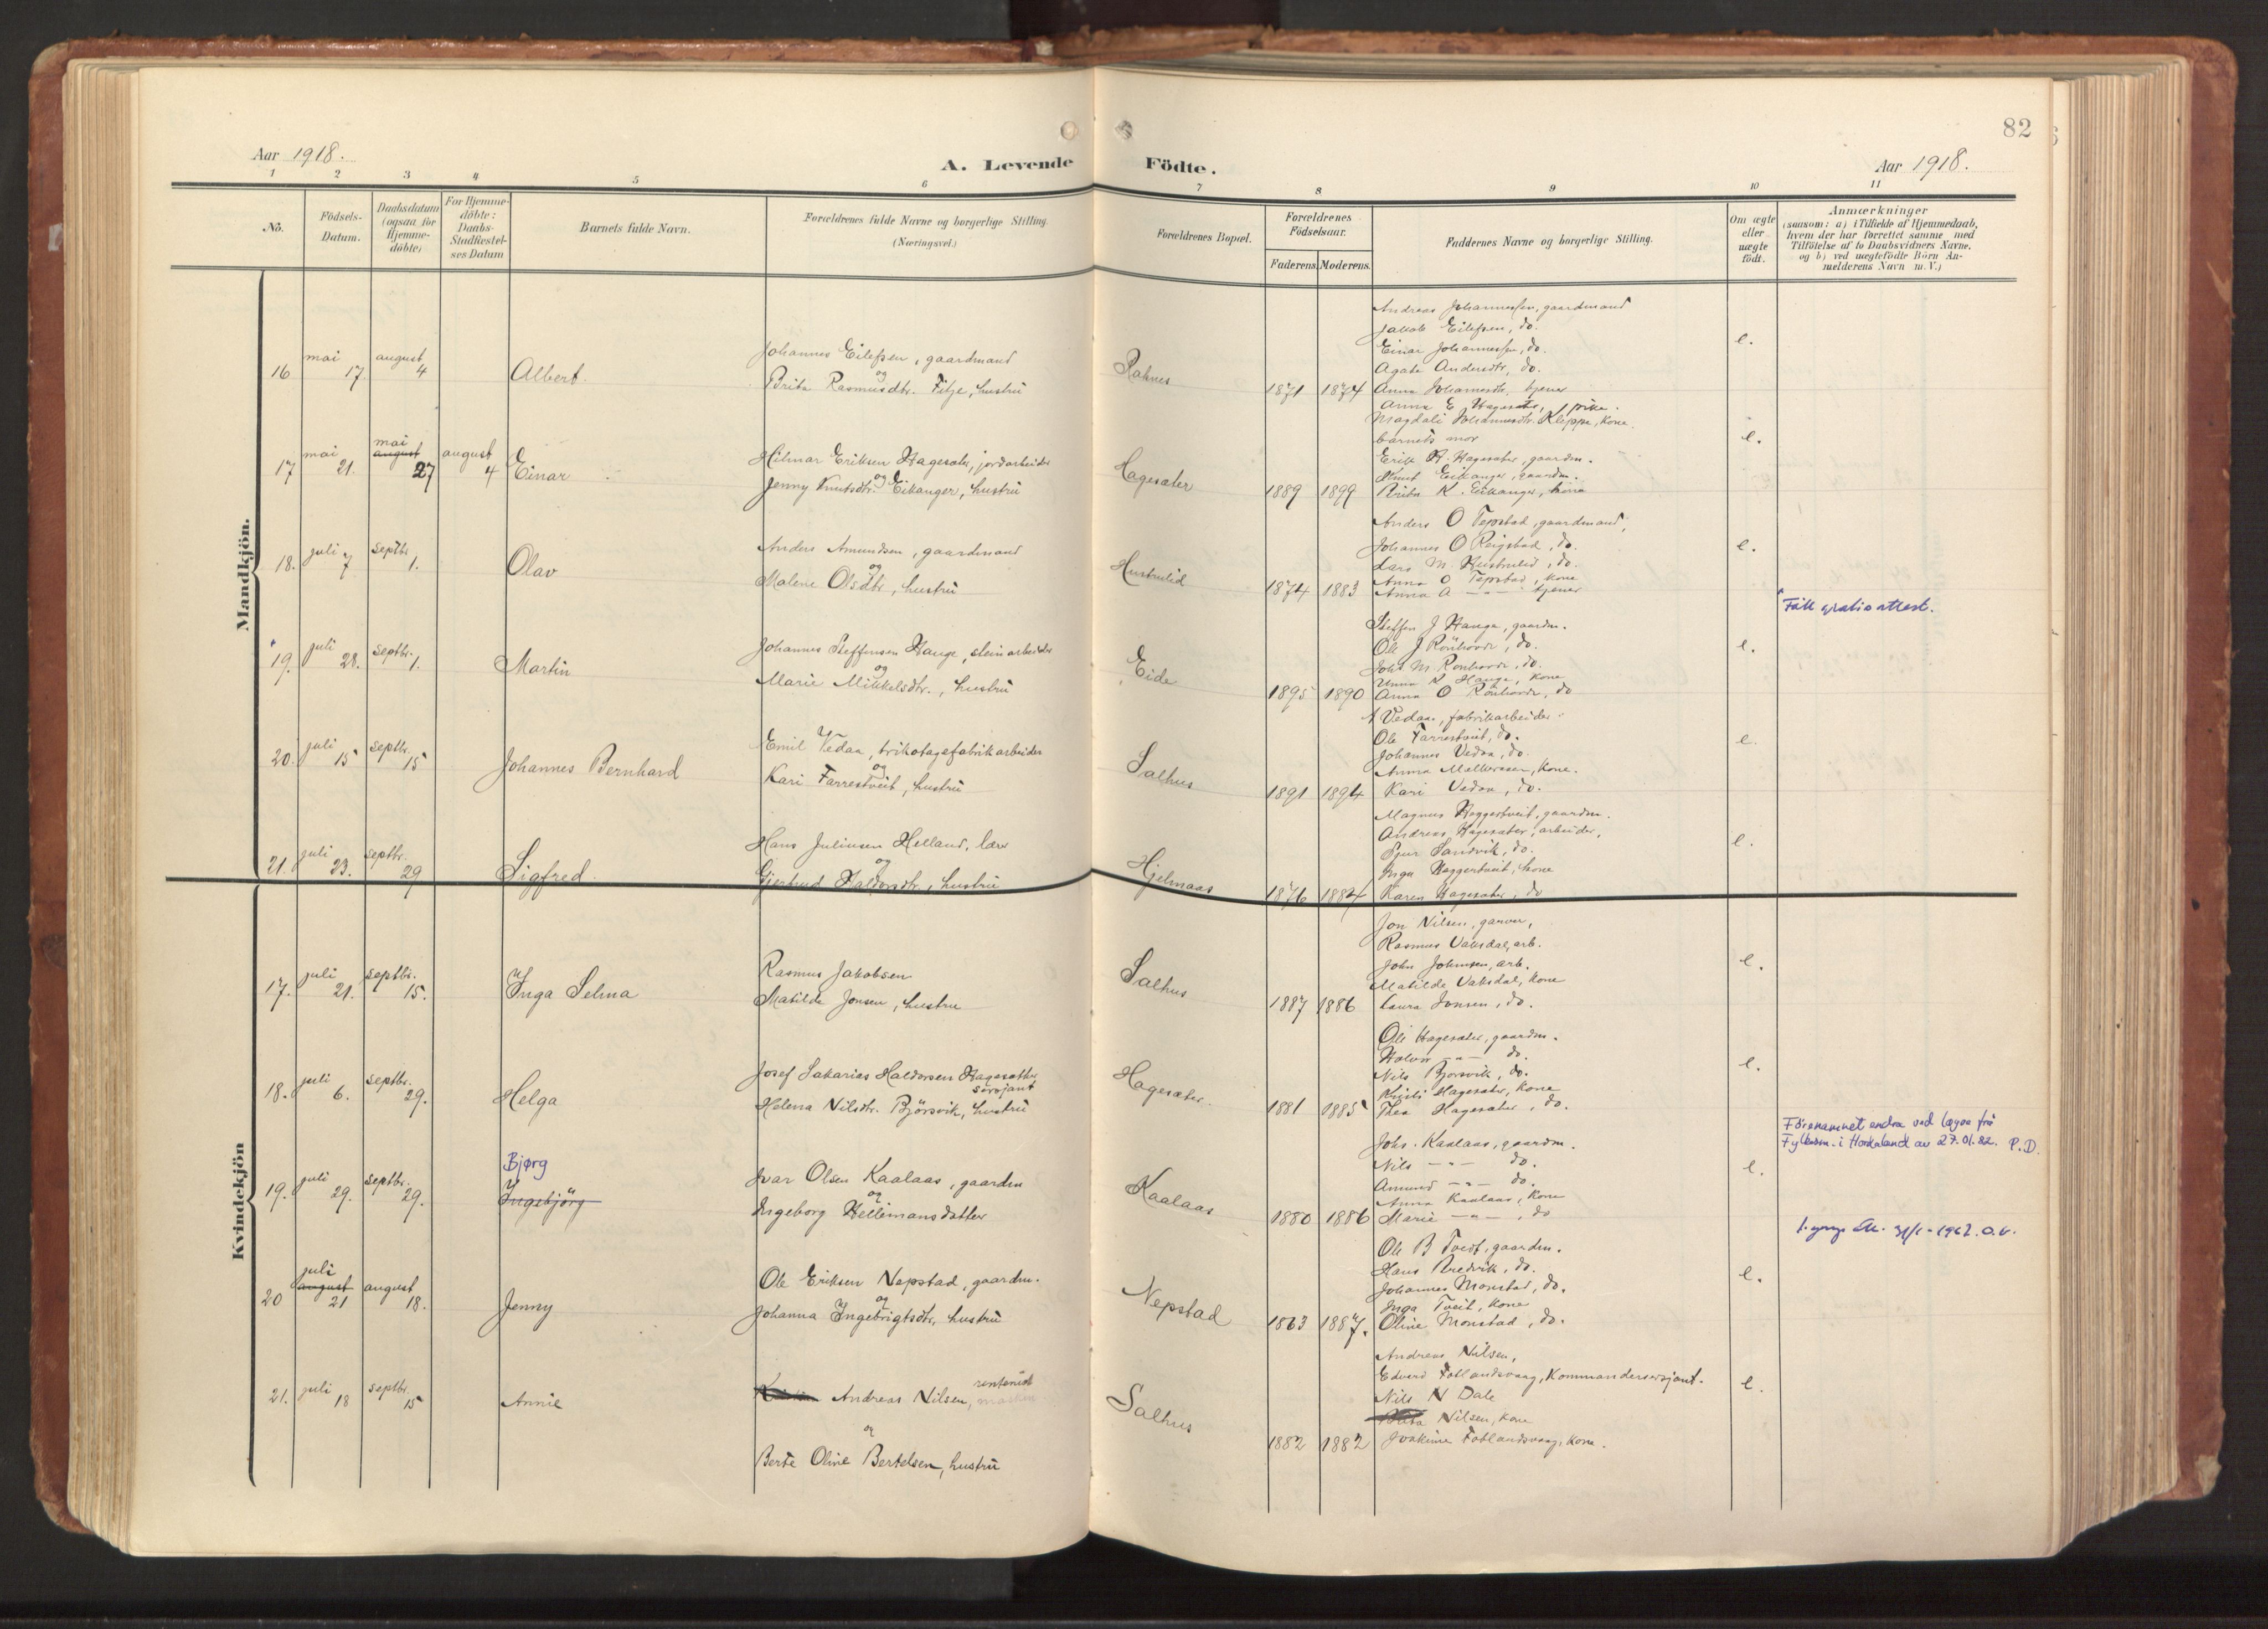 82
Aar 1918.
A. Levende Födte.
Aar 1918.
1 2 3 4 5 6 7 8 9 10 11
No.
Födsels-
Datum.
Daabsdatum
(ogsaa for
Hjemme-
döbte)
For Hjemme-
döbte:
Daabs-
Stadfæstel-
ses Datum
Barnets fulde Navn.
Forældrenes fulde Navne og borgerlige Stilling.
(Næringsvei.)
Forældrenes Bopæl.
Forældrenes
Födselsaar.
Faderens. Moderens.
Faddernes Navne og borgerlige Stilling.
Om ægte
eller
uægte
födt.
Anmærkninger
(saasom: a) i Tilfælde af Hjemmedaab,
hvem der har forrettet samme med
Tilföielse af to Daabsvidners Navne,
og b) ved uægtefödte Börn An-
melderens Navn m. V.)
Mandkjön.
16 mai 17. august 4 Albert.
Johannes Eilefsen, gaardmand
og
Brita Rasmusdtr. Fitje, hustru
1871 1874
Andreas Johannessen, gaardmand
Jakob Eilefsen, do.
Einar Johannessen, do.
Agate Andersdtr, do.
Anna Johannesdtr, tjener
e.
17 mai 21. mai august 27 august 4 Einar
Hilmar Eriksen Hagesæter, jordarbeider
og
Jenny Knutsdtr. Eikanger, hustru
Hagesæter
1889 1899
Anna E Hagesæter, pike.
Magdali Johannesdtr. Kleppe, kone.
barnets mor
Erik H. Hagesæter, gaardm.
Knut Eikanger, gaardm.
Brita K. Eikanger, kone
e.
18. juli 7 septbr. 1. Olav
Anders Amundsen, gaardmand
og
Malene Olsdtr, hustru
Hustrulid
1874 1883
Anders O Tepstad, gaardmand,
Johannes O Reigstad, do.
Lars M. Hustrulid, do.
Anna O Tepstad, kone
Anna A —"— tjener
e.
19. juli 28. septbr. 1. Martin
Johannes Steffensen Hauge, steinarbeider
og
Marie Mikkelsdtr., hustru
Eide
1895 1890
Steffen J Hauge, gaardm.
Ole J Rönhovde, do.
Johs M Rönhovde, do.
Hauge, kone
Anna O Rönhovde, do
e.
Fått gratis attest.
20. juli 15 septbr. 15 Johannes Bernhard
Emil Vedaa, trikotagefabrikarbeider
og
Kari Farrestveit, hustru
Salhus
1891 1894
A Vedaa, fabrikarbeider.
Ole Farrestveit, do.
Johannes Vedaa, do.
Anna Mathiesen, kone.
Kari Vedaa, do.
e.
21. juli 23. septbr. 29 Sigfred.
Hans Juliussen Helland, lærer
og
Gjertrud Haldorsdtr., hustru
Hjelmaas
1876 1884
Magnus Heggertveit, gaardm.
Andreas Hagesæter, arbeider,
Sjur Sandvik, do.
Inga Heggertveit, kone
Karen Hagesæter, do
e.
Kvindekjön
17. juli 21. septbr. 15. Inga Selma
Rasmus Jakobsen
Matilde Jonsen, hustru
Salhus
1887 1886
Jon Nilsen, garver,
Rasmus Vaksdal, arb.
John Johnsen, arb.
Matilde Vaksdal, kone
Laura Jonsen, do.
e.
18. juli 6. septbr. 29. Helga
Josef Sakarias Haldorsen Hagesæther
sersjant
Helena Nilsdtr. Björsvik, hustru
Hagesæter.
1881 1885
Ole Hagesæter, gaardm.
Halvor —"— do.
Nils Bjorsvik, do.
Kristi Hagesæter, kone
Thea Hagesæter, do.
e.
19. juli 29. septbr. 29. Bjørg
Ingebjörg
Ivar Olsen Kaalaas, gaardm
og
Ingeborg Hellimansdatter
Kaalaas
1880 1886
Johs. Kaalaas, gaardm.
Nils —"— do.
Amund —"— do.
Anna Kaalaas, kone
Marie —"—, do
e.
Förenamnet endra ved lögve frå
Fylkesm. i Hordaland av 27.01.82. P.D.
20 juli august 21 august 18. Jenny
Ole Eriksen Nepstad, gaardm.
og
Johanna Ingebrigtsdtr, hustru
Nepstad
1863 1887.
Ole B Tveit, gaardm.
Hans Bredvik, do.
Johannes Monstad, do.
Inga Tveit, kone
Oline Monstad, do.
e.
21. juli 18 septbr. 15 Annie
Andreas Nilsen,
og
Berte Oline Bertelsen, hustru
Salhus
1882 1882
Andreas Nilsen,
Edvard Foblandsvaag, Kommandersersjant.
Nils N Dale
Nilsen, kone
Joakime Foblandsvaag, kone.
e.